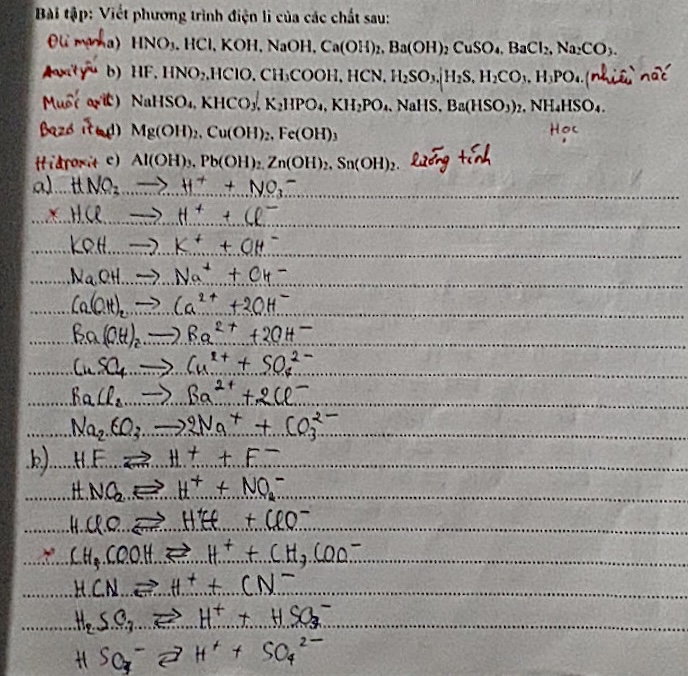 Bài tập: Viết phương trình điện li của các chất sau:
Đli mạnh a) HNO₃, HCl, KOH, NaOH, Ca(OH)₂, Ba(OH)₂ CuSO₄, BaCl₂, Na₂CO₃.
Axit yếu b) HF, HNO₂,HClO, CH₃COOH, HCN, H₂SO₃,|H₂S, H₂CO₃, H₃PO₄. (nhiều nấc
Muối axit c) NaHSO₄, KHCO₃, K₂HPO₄, KH₂PO₄, NaHS, Ba(HSO₃)₂, NH₄HSO₄.
Bazơ ít tan d) Mg(OH)₂, Cu(OH)₂, Fe(OH)₃ Học
Hiđroxit e) Al(OH)₃, Pb(OH)₂, Zn(OH)₂, Sn(OH)₂. lưỡng tính
a) HNO₃ → H⁺ + NO₃⁻
* HCl → H⁺ + Cl⁻
KOH → K⁺ + OH⁻
NaOH → Na⁺ + OH⁻
Ca(OH)₂ → Ca²⁺ + 2OH⁻
Ba(OH)₂ → Ba²⁺ + 2OH⁻
CuSO₄ → Cu²⁺ + SO₄²⁻
BaCl₂ → Ba²⁺ + 2Cl⁻
Na₂CO₃ → 2Na⁺ + CO₃²⁻
b) HF ⇌ H⁺ + F⁻
HNO₂ ⇌ H⁺ + NO₂⁻
HClO ⇌ H⁺ + ClO⁻
* CH₃COOH ⇌ H⁺ + CH₃COO⁻
HCN ⇌ H⁺ + CN⁻
H₂SO₃ ⇌ H⁺ + HSO₃⁻
HSO₃⁻ ⇌ H⁺ + SO₄²⁻